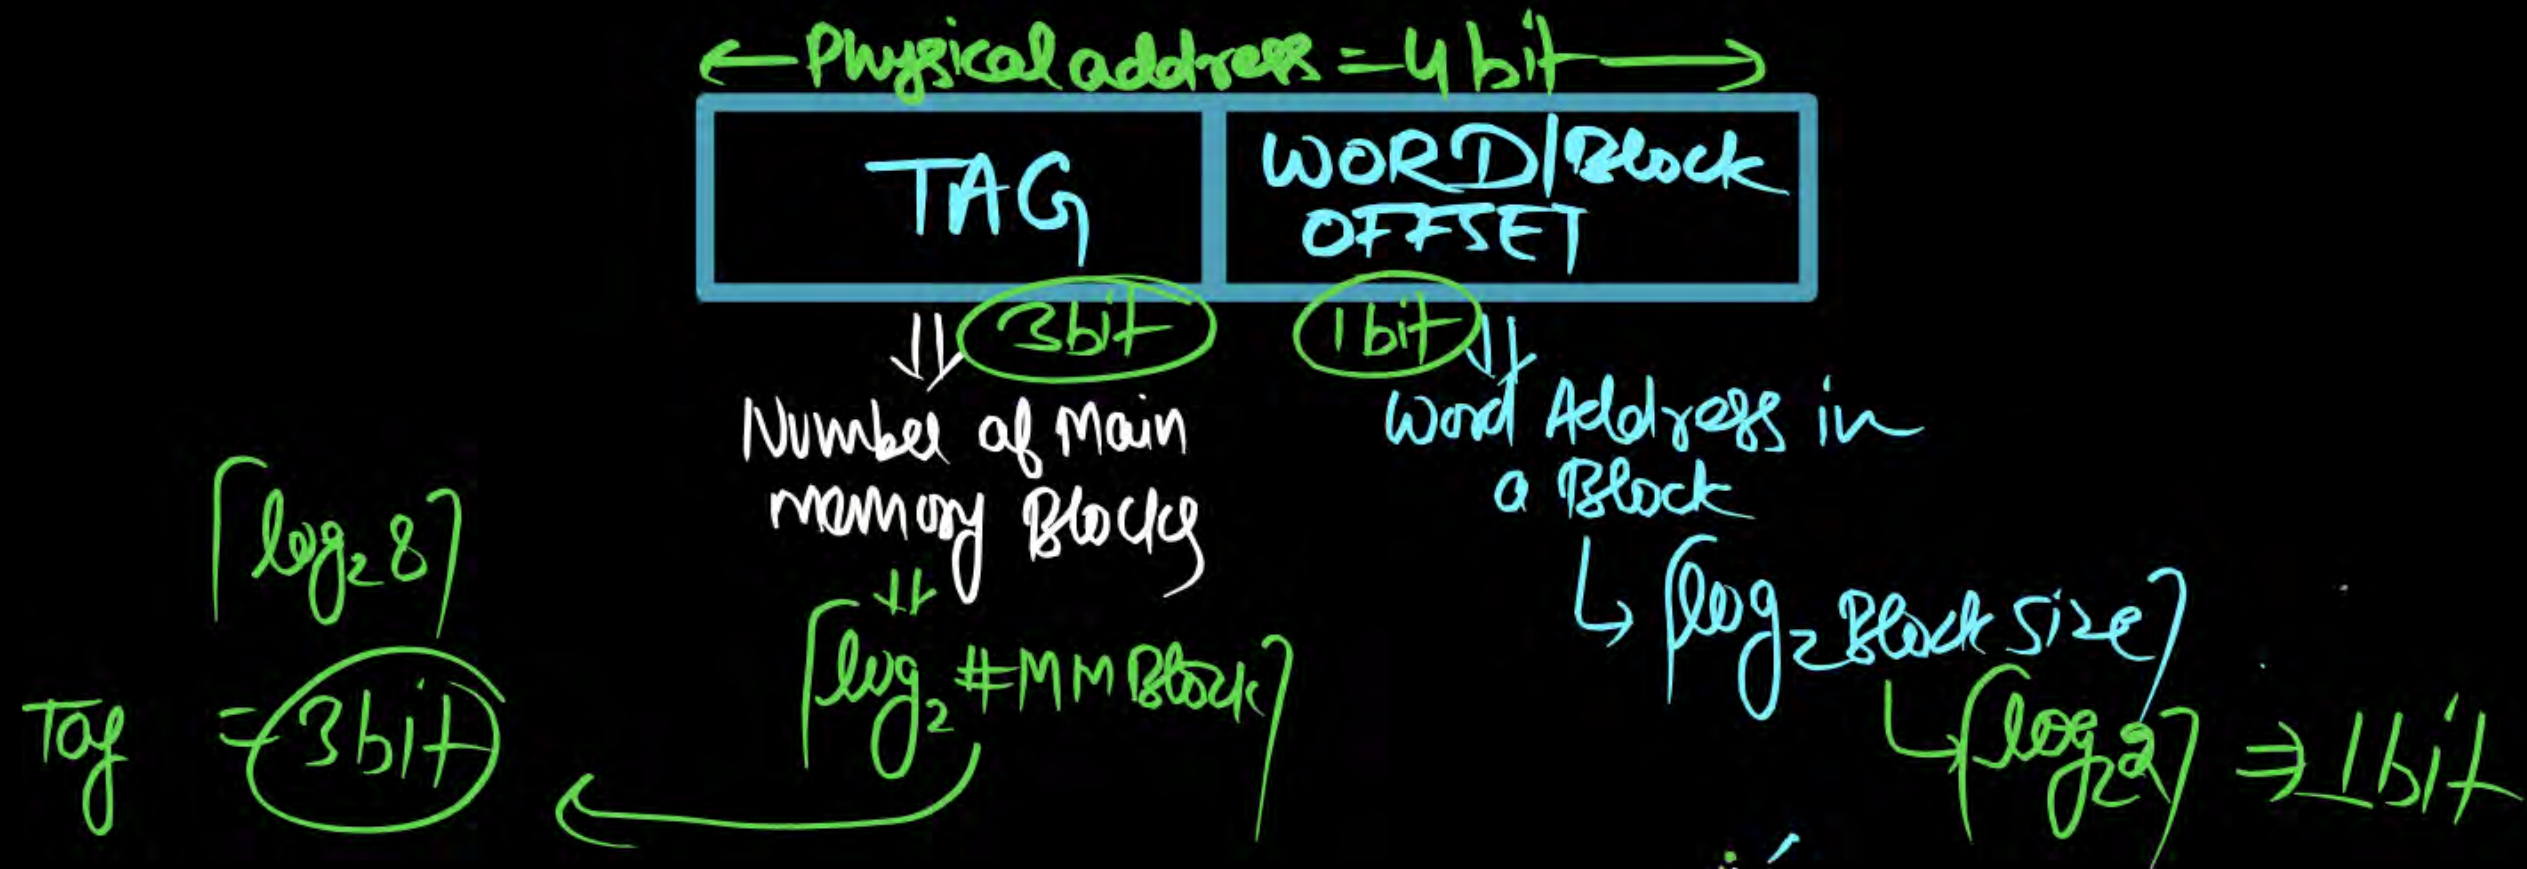 ← Physical address = 4 bit →
TAG
WORD/Block
OFFSET
3bit
1 bit
Number of Main
memory Blocks
Word Address in
a Block
⌈log₂ 8⌉
⌈log₂ #MM Block⌉
⌈log₂ Block Size⌉
Tag = 3bit
⌈log₂ 2⌉ ⇒ 1bit